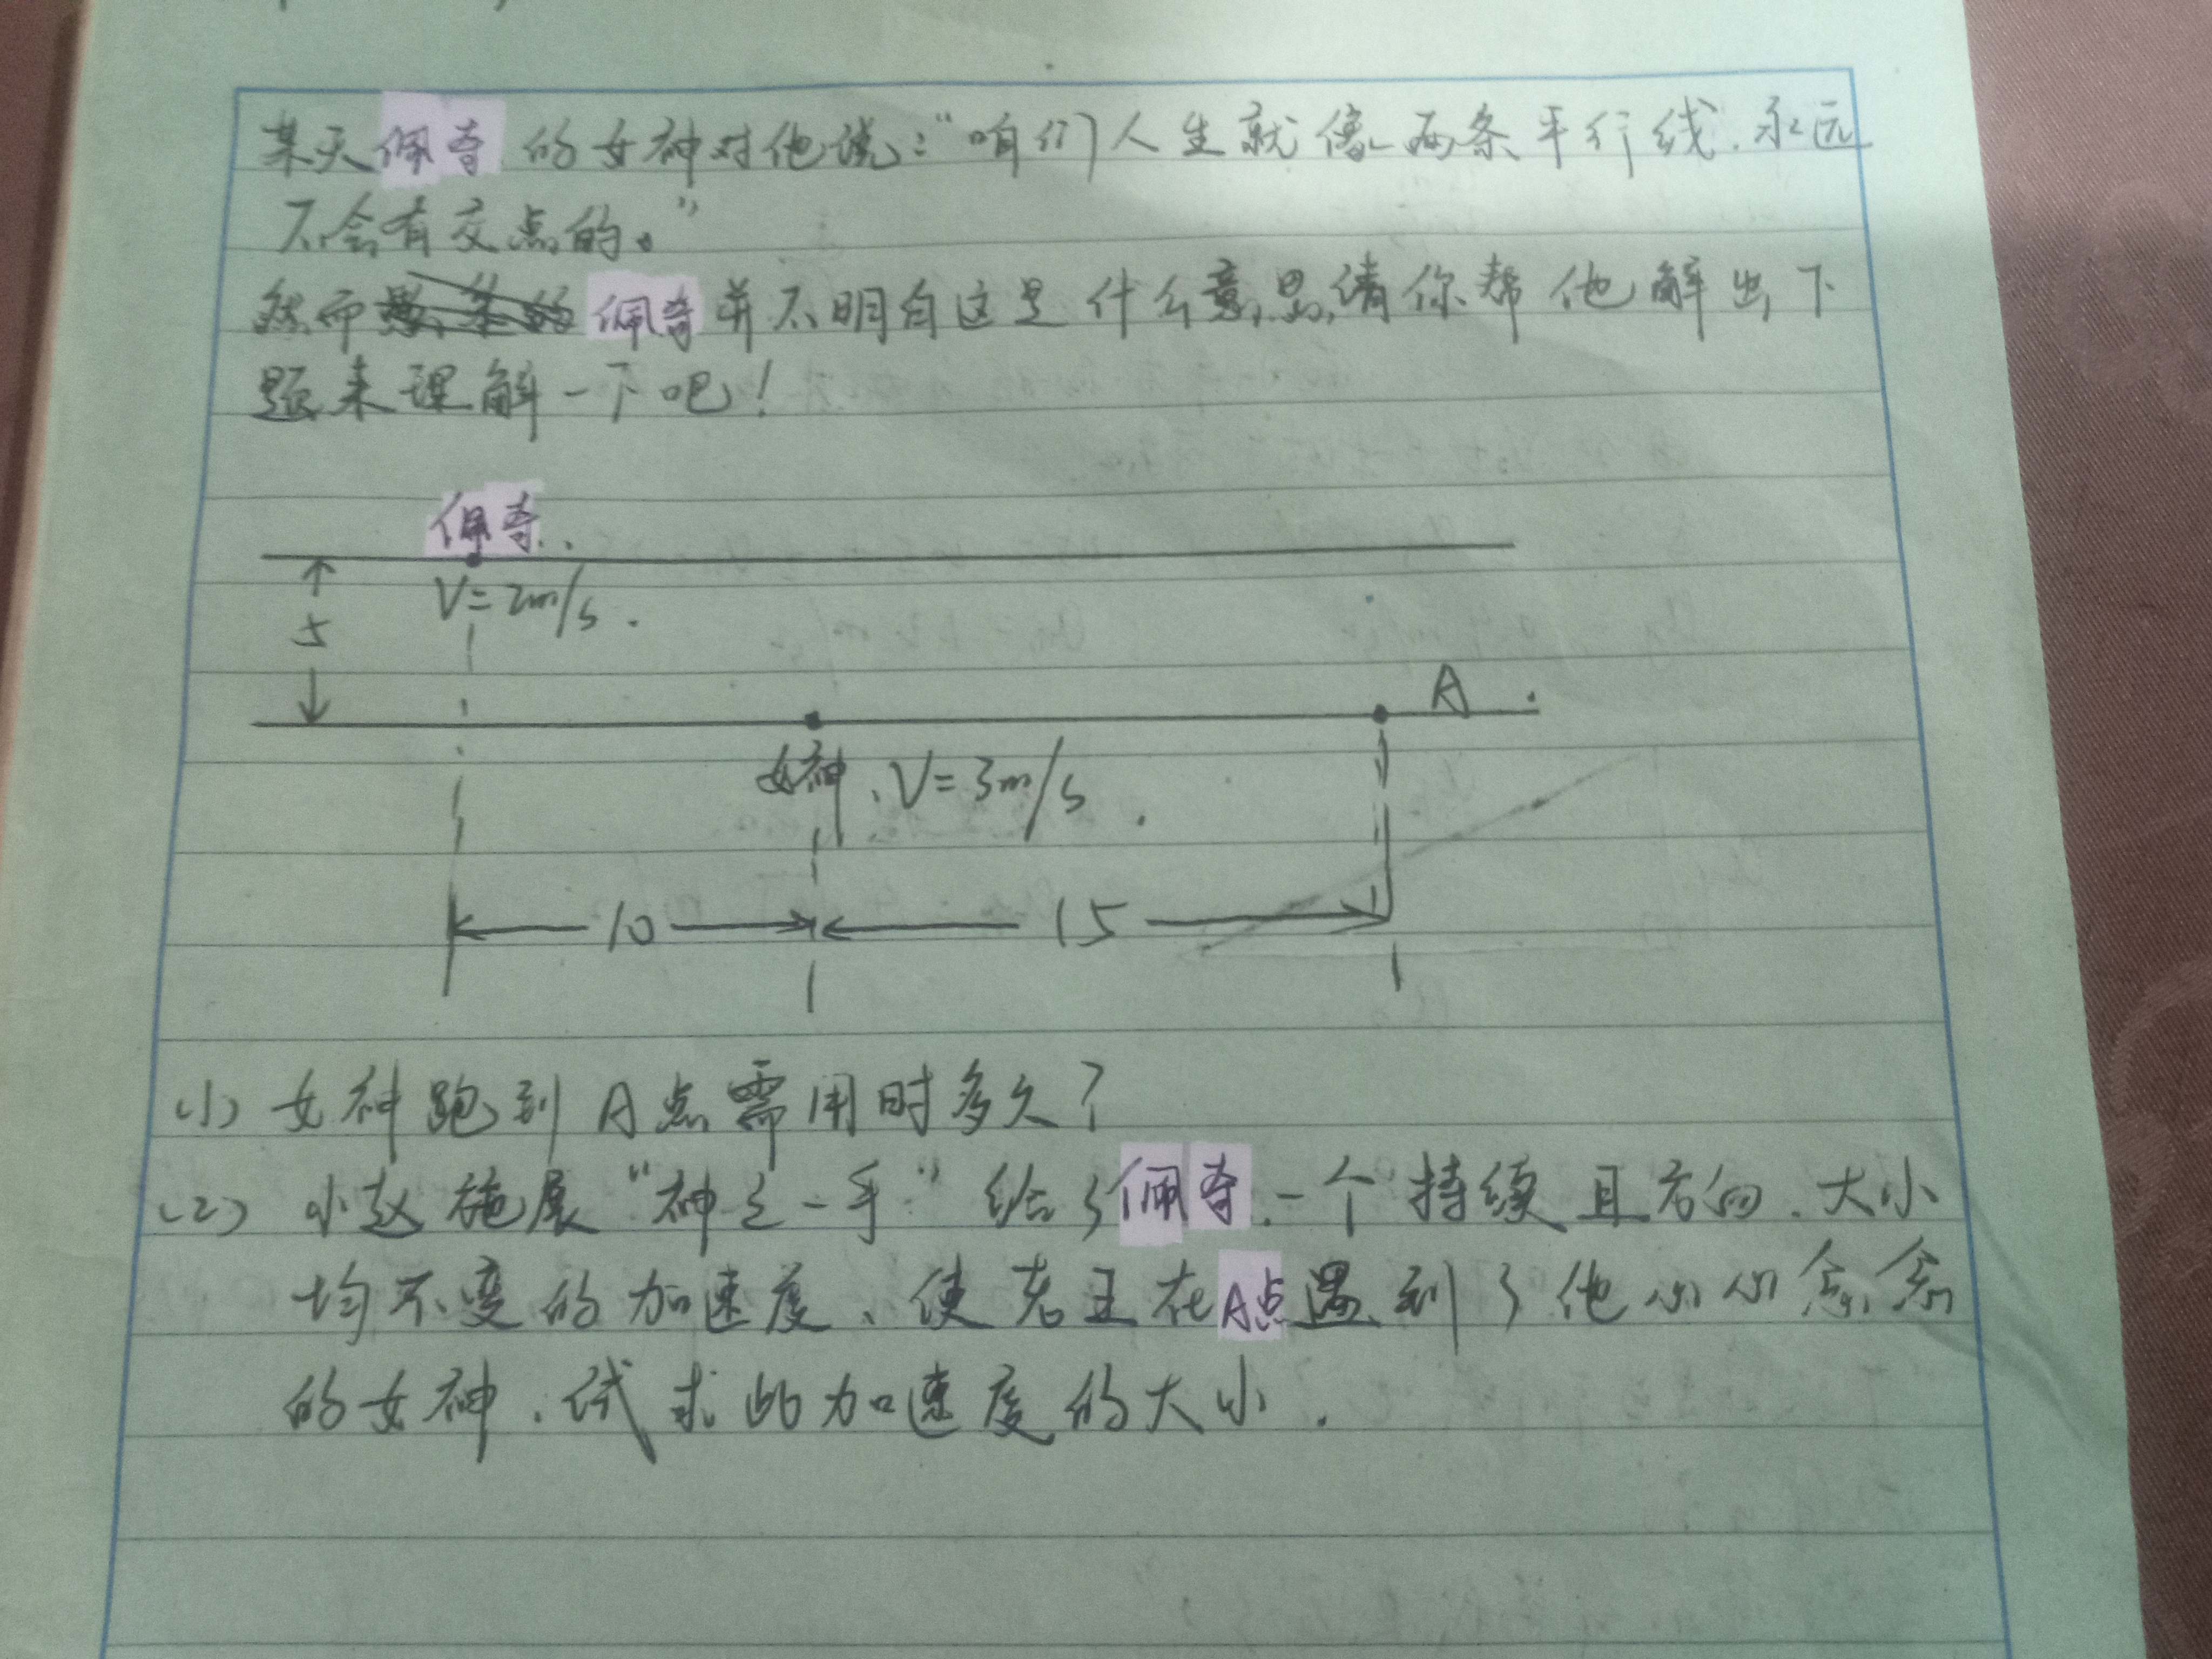 某天佩奇的女神对他说:“咱们人生就像两条平行线,永远
不会有交点的。”
然而佩奇并不明白这是什么意思,请你帮他解出下
题来理解一下吧!
佩奇.
V=2m/s.
5
A.
女神、V=3m/s.
10
15
(1) 女神跑到A点需用时多久?
(2) 小赵施展“神之一手”给了佩奇一个持续且方向、大小
均不变的加速度、使老王在A点遇到了他心心念念
的女神.试求此加速度的大小.